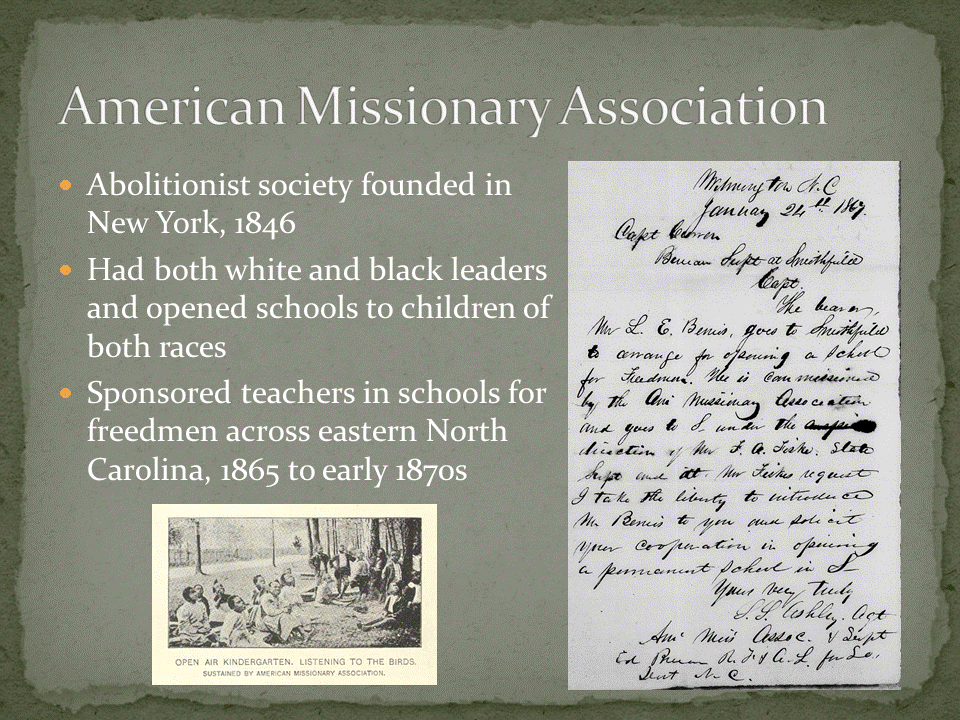 American Missionary Association
Abolitionist society founded in
New York, 1846
Had both white and black leaders
and opened schools to children of
both races
Sponsored teachers in schools for
freedmen across eastern North
Carolina, 1865 to early 1870s
OPEN AIR KINDERGARTEN. LISTENING TO THE BIRDS.
SUSTAINED BY AMERICAN MISSIONARY ASSOCIATION.
Wilmington N.C
January 24th 1867.
Capt
Bureau Supt at Smithfield
Capt.
The bearer,
Mr L. E. Bemis, goes to Smithfield
to arrange for opening a School
for Freedmen. He is commissioned
by the Am Missionary Association
and goes to S. under the
direction of Mr F. A. Fiske. State
Supt and at Mr Fiskes request
I take the liberty to introduce
Mr. Bemis to you and solicit
your cooperation in opening
a permanent School in S
Yours very truly
S. S. Ashley. Agt
Am' Miss Assoc. & Supt
Ed Bureau R. F. & A. L. for So.,
N C.